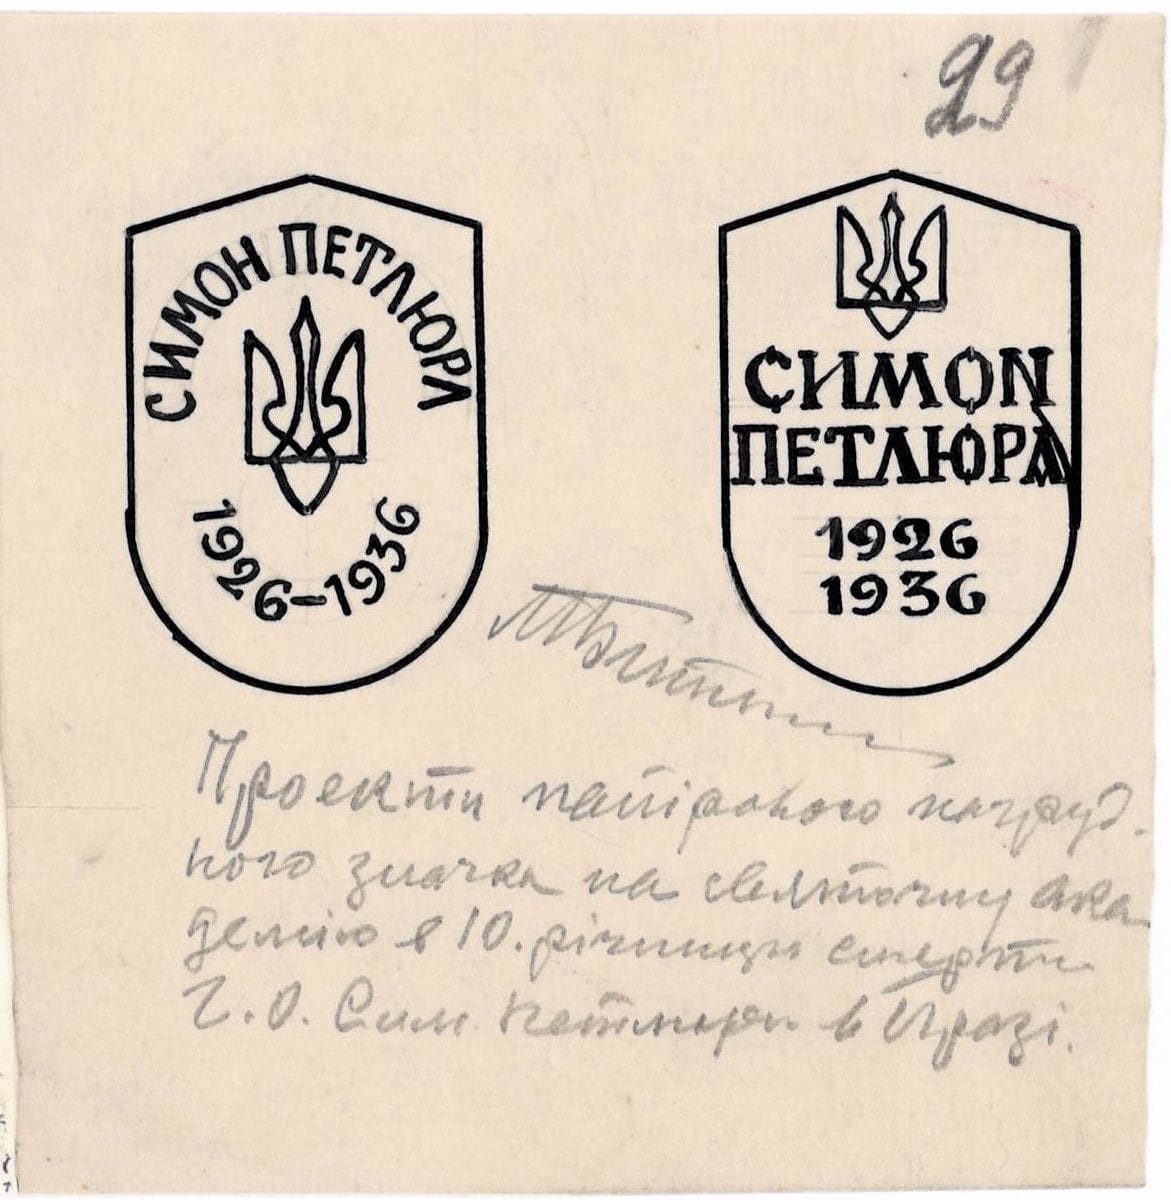 29
СИМОН ПЕТЛЮРА
1926–1936
СИМОН
ПЕТЛЮРА
1926
1936
Проекти папірового нагруд-
ного значка на святочну ака
демію в 10. річницю смерти
Г. О. Сим Петлюри в Празі.